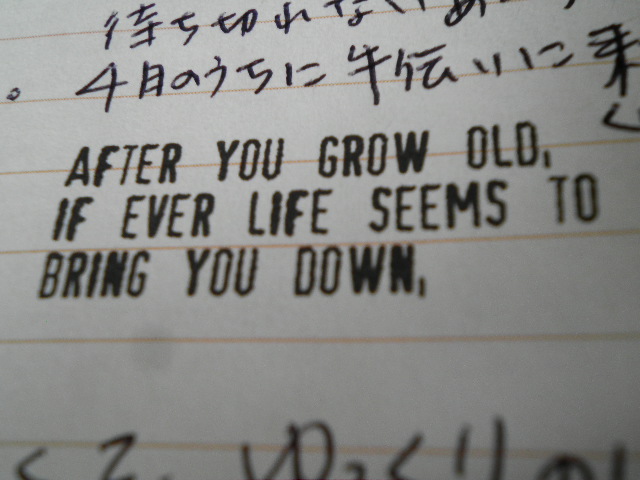 待ち切れない
。4月のうちに 手伝いに 来
AFTER YOU GROW OLD,
IF EVER LIFE SEEMS TO
BRING YOU DOWN,
ゆっくり